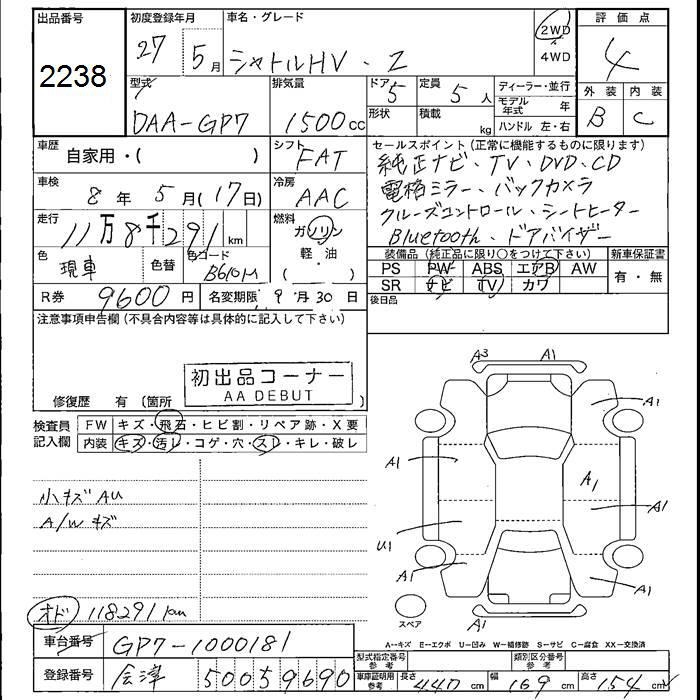 出品番号 初度登録年月 車名・グレード 評価点
2238 27 5月 シャトルHV・Z 2WD・4WD 4
型式 排気量 ドア 5 定員 5人 ディーラー・並行 外装 内装
DAA-GP7 1500cc 形状 積載 kg モデル年式 年 B C
ハンドル 左・右
車歴 自家用・( ) シフト FAT セールスポイント(正常に機能するものに限ります)
純正ナビ、TV、DVD、CD
車検 8年 5月(17日) 冷房 AAC 電格ミラー、バックカメラ
走行 11万8千291km 燃料 ガソリン 軽・油 クルーズコントロール、シートヒーター
Bluetooth、ドアバイザー
色 現車 色替 色コード B610M 装備品(純正品に限り○をつけて下さい) 新車保証書
PS PW ABS エアB AW 有・無
SR ナビ TV カワ
R券 9600円 名変期限 9月30日 後日品
注意事項申告欄(不具合内容等は具体的に記入して下さい)
初出品コーナー
AA DEBUT
修復歴 有(箇所
検査員記入欄 FW キズ・飛石・ヒビ割・リペア跡・X要
内装 キズ・汚レ・コゲ・穴・スレ・キレ・破レ
A3 A1
A1
A1 A1
A1
小キズ AU
A/W キズ
U1
A1 A1
スペア
A1
オド 118291km
A-キズ E-エクボ U-凹み W-補修跡 S-サビ C-腐食 XX-交換済
車台番号 GP7-1000181
型式指定番号 参考 類別区分番号 参考
登録番号 会津 500 5 9690
車庫証明用参考 長さ 440cm 幅 169cm 高さ 154cm